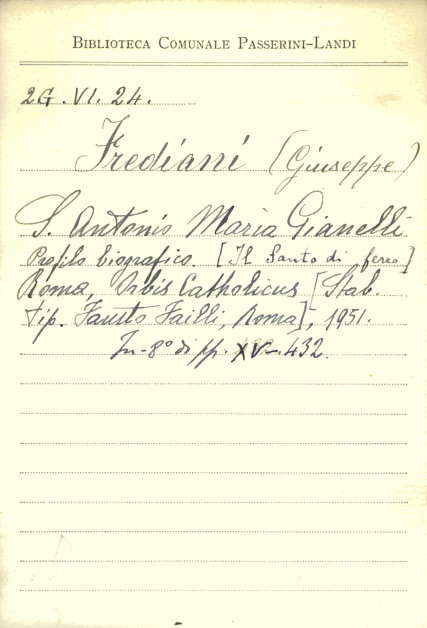 BIBLIOTECA COMUNALE PASSERINI-LANDI
2G.VI.24.
Frediani (Giuseppe)
S. Antonio Maria Gianelli
Profilo biografico. [Il Santo di ferro]
Roma, Orbis Catholicus [Stab.
tip. Fausto Failli, Roma], 1951.
In-8° di pp. XV-432.